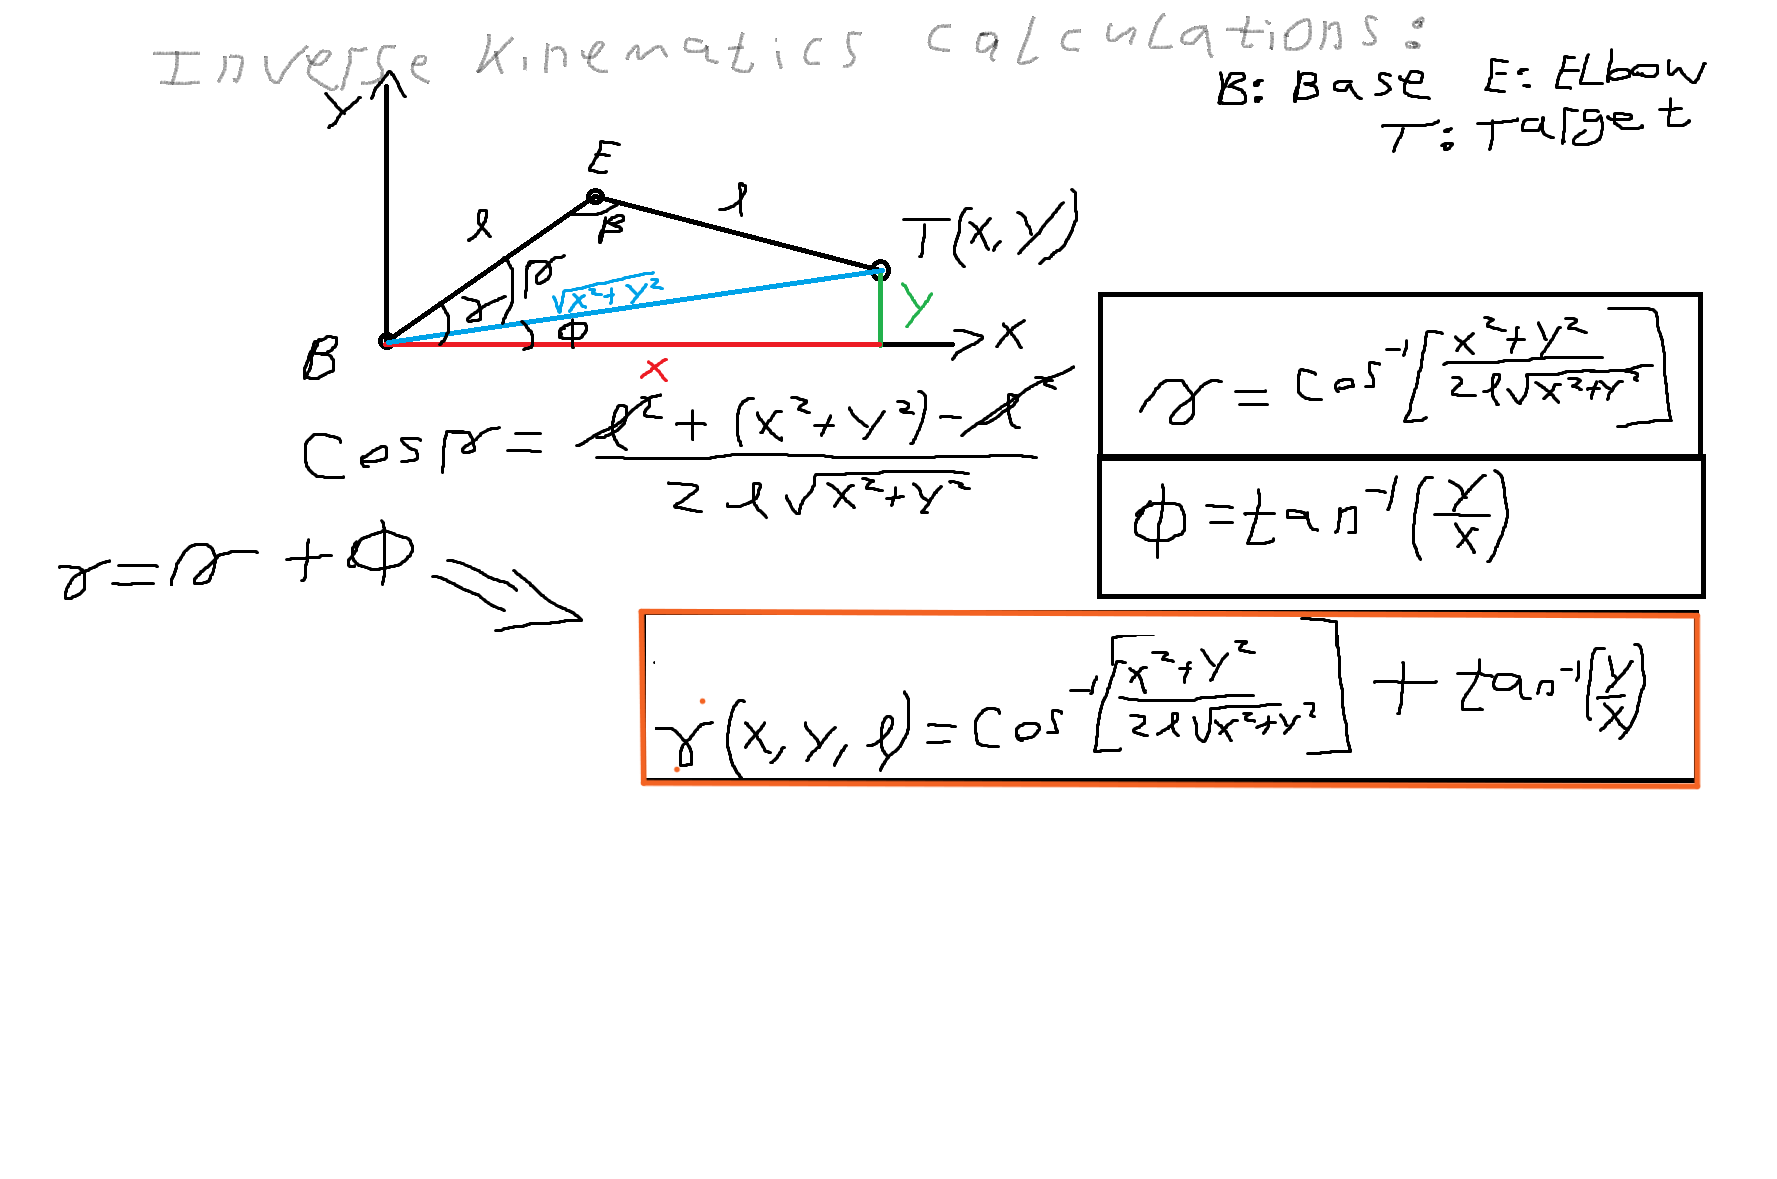 Inverse Kinematics Calculations:
B: Base E: ELbow
T: Target
Y
E
l
l
β
T(x, y)
γ
√x²+y²
y
Φ
B
x
X
Cos = l² + (x²+y²) - l² / 2l√x²+y²
= cos⁻¹[x²+y² / 2l√x²+y²]
Φ = tan⁻¹(y/x)
γ = + Φ
γ(x, y, l) = cos⁻¹[x²+y² / 2l√x²+y²] + tan⁻¹(y/x)